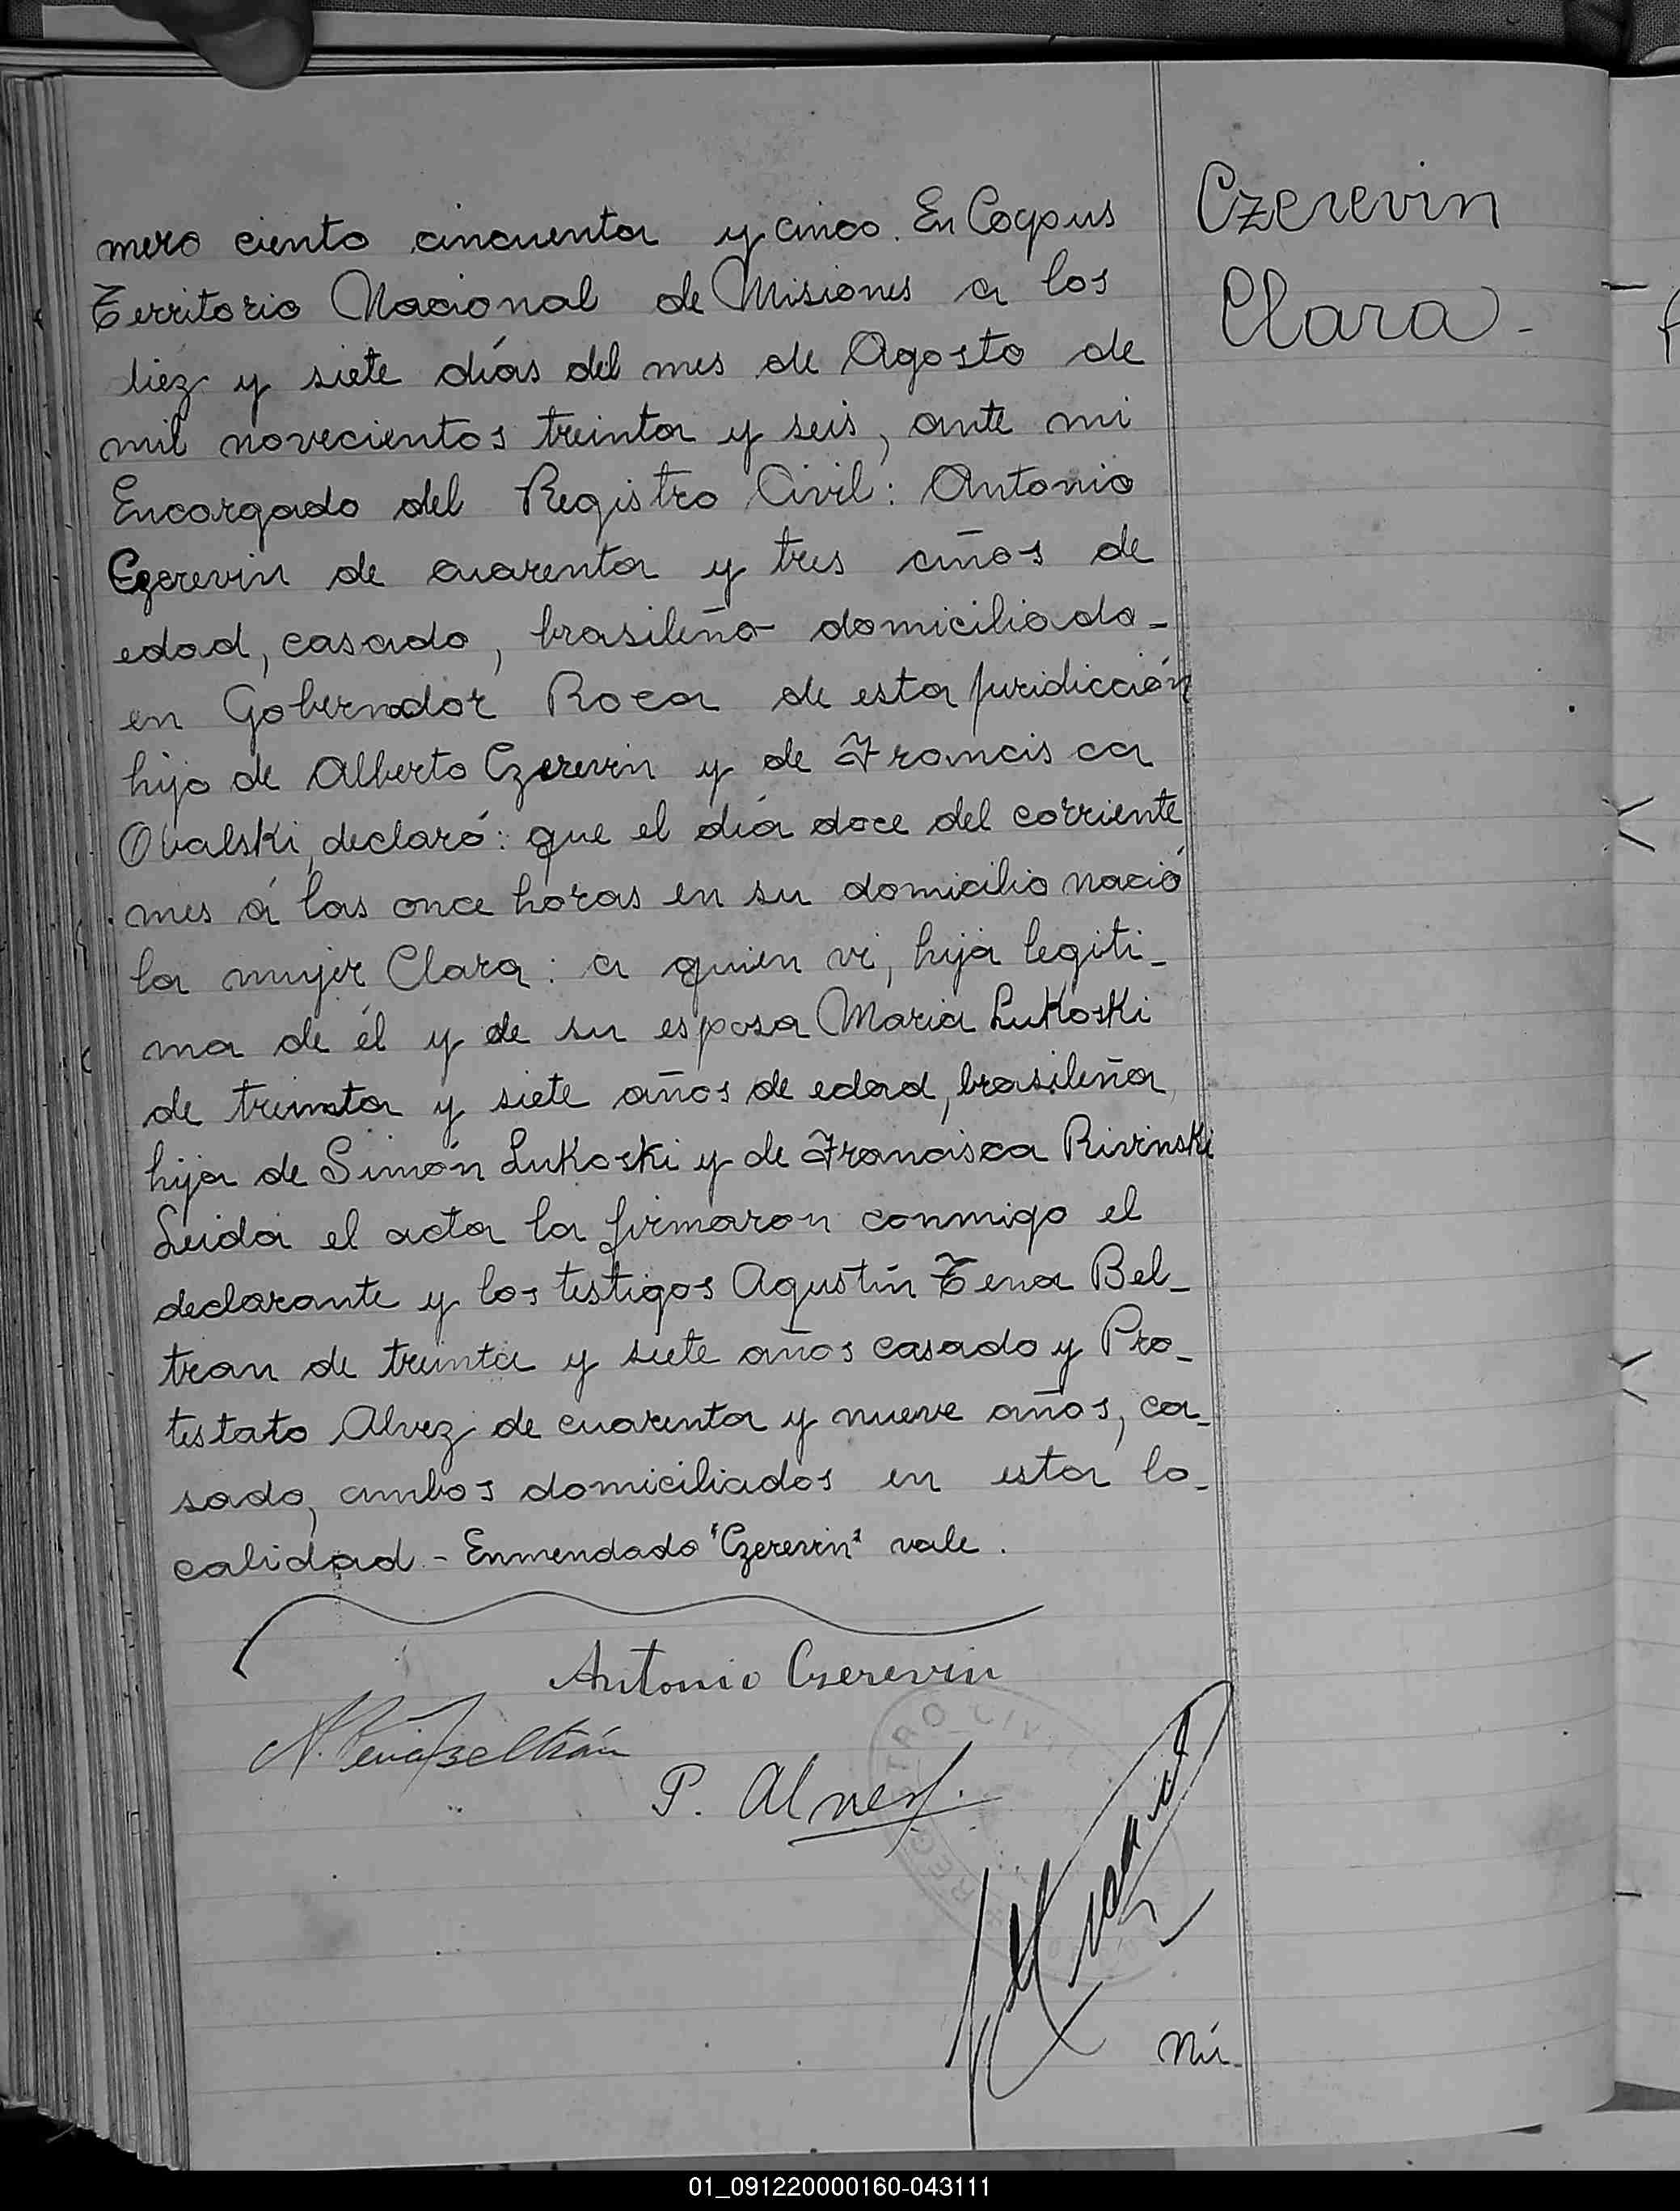 mero ciento cincuenta y cinco. En Corpus
Territorio Nacional de Misiones a los
diez y siete días del mes de Agosto de
mil novecientos treinta y seis, ante mi
Encargado del Registro Civil: Antonio
Czerevin de cuarenta y tres años de
edad, casado, brasileño domiciliado-
en Gobernador Roca de esta juridicción
hijo de Alberto Czerevin y de Francisca
Obalski, declaró: que el día doce del corriente
mes á las once horas en su domicilio nació
la mujer Clara: a quien vi, hija legiti-
ma de él y de su esposa Maria Lukoski
de treinta y siete años de edad, brasileña
hija de Simón Lukoski y de Francisca Rivinski
Leida el acta la firmaron conmigo el
declarante y los testigos Agustín Tena Bel-
tran de treinta y siete años casado y Pro-
testato Alvez de cuarenta y nueve años, ca-
sado, ambos domiciliados en esta lo-
calidad - Enmendado "Czerevin" vale.
Czerevin
Clara -
Antonio Czerevin
A. Tena Beltrán
P. Alvez.
REGISTRO CIVIL
Nú-
01_091220000160-043111